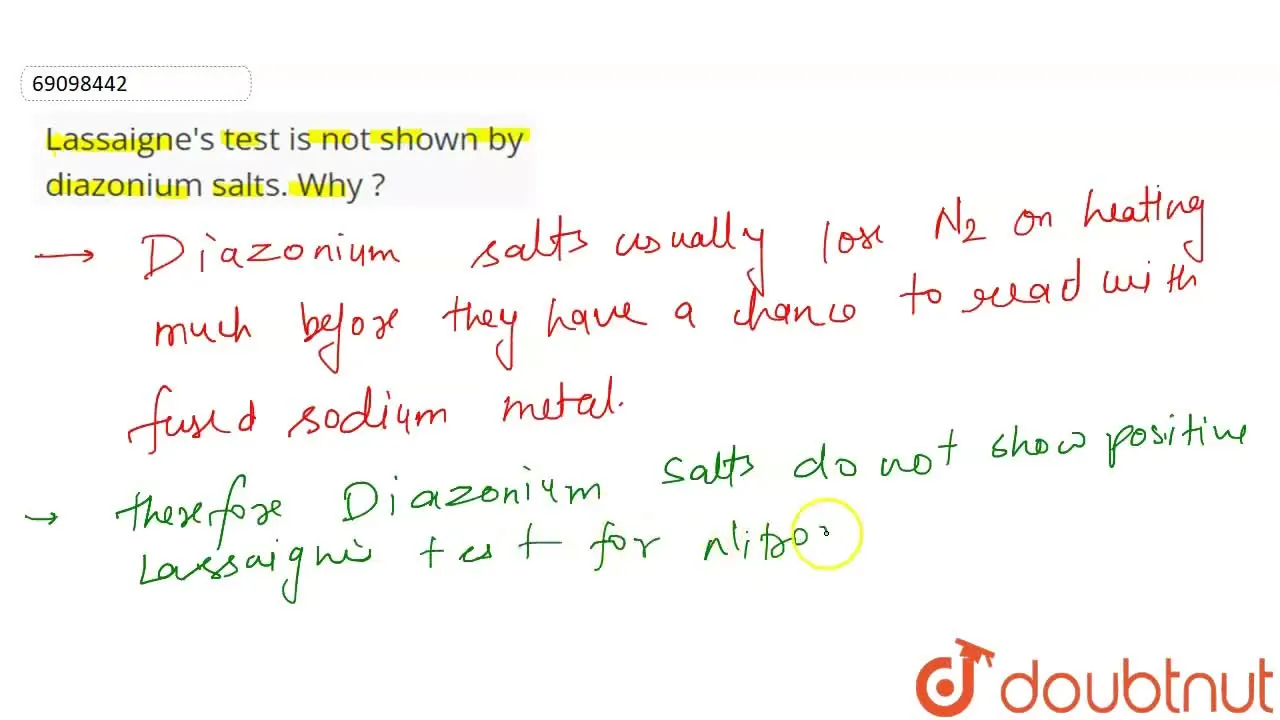 69098442
Lassaigne's test is not shown by
diazonium salts. Why ?
→ Diazonium salts usually lose N2 on heating
much before they have a chance to read with
fused sodium metal.
→ therefore Diazonium salts do not show positive
Lassaigne's test for nitro
doubtnut